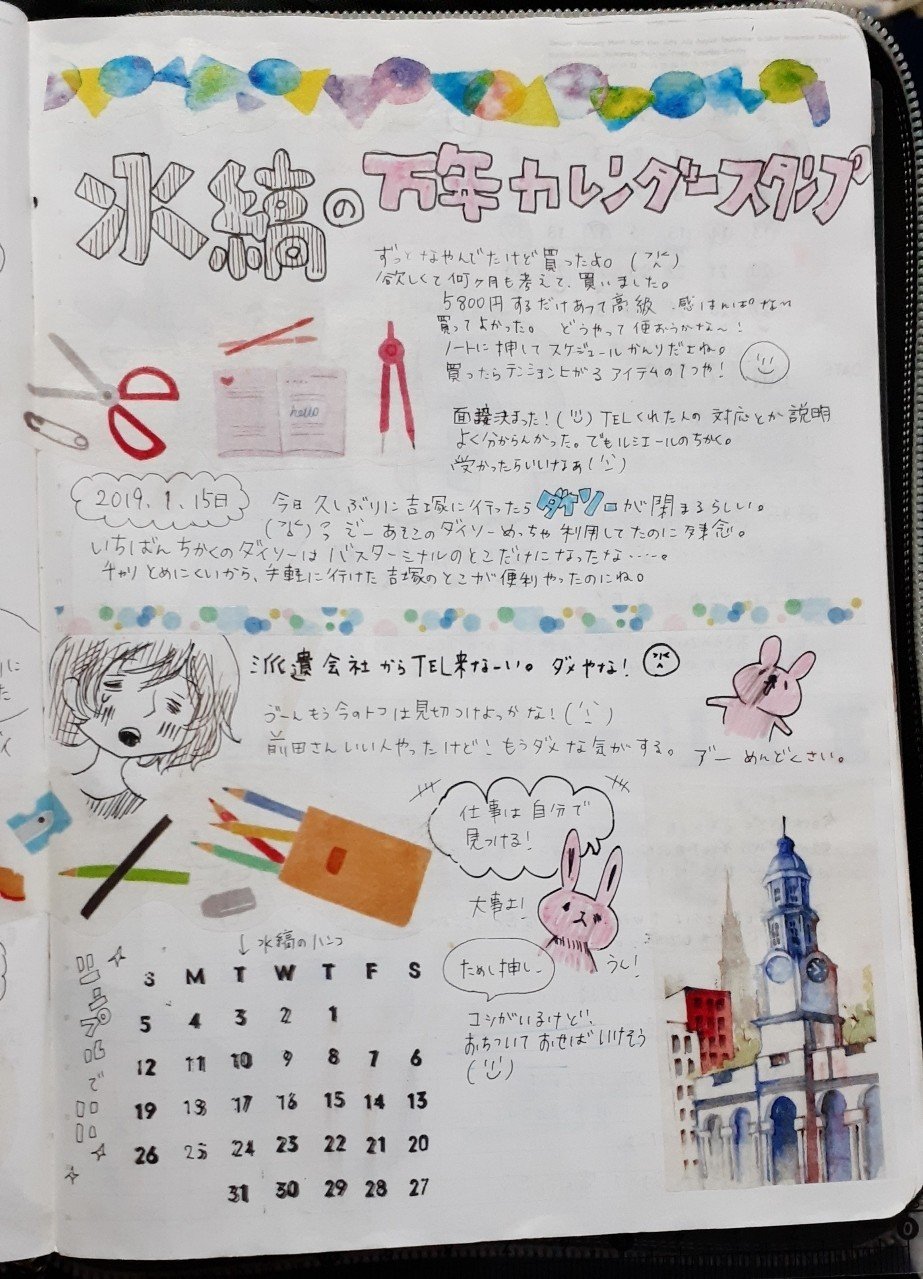 水縞の万年カレンダースタンプ
ずっとなやんでたけど買ったよ。
欲しくて何ヶ月も考えて、買いました。
5800円するだけあって高級感はんぱない
買ってよかった。どうやって使おうかな〜!
ノートに押してスケジュールかんりだよね。
買ったらテンション上がるアイテムの1つや!
hello
面接決まった! TELくれた人の対応とか説明
よく分からんかった。でもルミエールのちかく。
受かったらいいなぁ
2019.1.15日
今日久しぶりに吉塚に行ったらダイソーが閉まるらしい。
あそこのダイソーめっちゃ利用してたのに残念。
いちばんちかくのダイソーはバスターミナルのとこだけになったな……。
チャリとめにくいから、手軽に行けた吉塚のとこが便利やったのにね。
派遣会社からTEL来なーい。ダメやな!
もう今のトコは見切つけよっかな!
前田さんいい人やったけど!もうダメな気がする。
ブー めんどくさい。
仕事は自分で
見つける!
大事よ!
うし!
↓水縞のハンコ
ためし押し
コツがいるけど、
おちついておせばいけそう
シンプルで
S M T W T F S
5 4 3 2 1
12 11 10 9 8 7 6
19 18 17 16 15 14 13
26 25 24 23 22 21 20
31 30 29 28 27